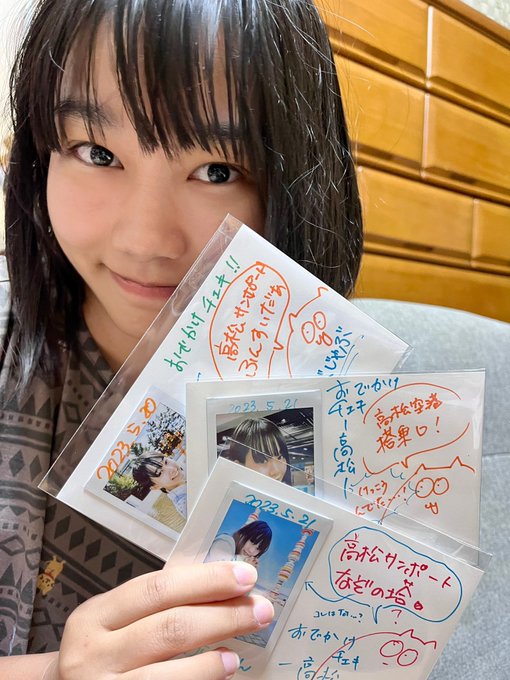 おでかけチェキ!!
高松サンポート
ふんすいだぁ
じゃぶ
2023.5.20
2023.5.21
おでかけ
チェキー高松
高松空港
搭乗口!
けっこう
2023.5.21
高松サンポート
なぞの塔。
?
コレはなに…?
おでかけ
チェキ
ー高松